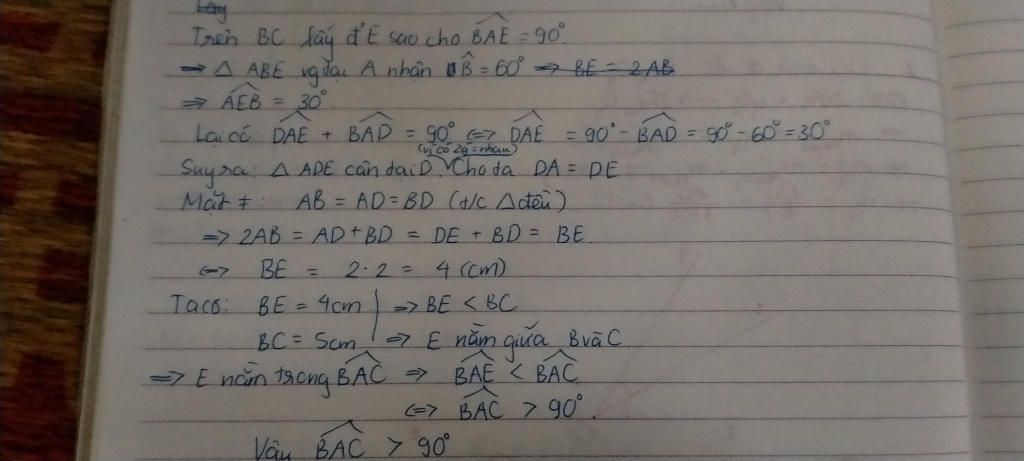 Lấy
Trên BC lấy đ' E sao cho BAE = 90°
⇒ Δ ABE vg tại A nhận B = 60° ⇒ BE = 2AB
⇒ AEB = 30°
Lại có: DAE + BAD = 90° ⇔ DAE = 90° - BAD = 90° - 60° = 30°
(vì có 2g = nhau)
Suy ra: Δ ADE cân tại D. Cho ta DA = DE
Mặt ≠: AB = AD = BD (t/c Δ đều)
⇒ 2AB = AD + BD = DE + BD = BE
⇔ BE = 2·2 = 4 (cm)
Ta có: BE = 4cm | ⇒ BE < BC
BC = 5cm | ⇒ E nằm giữa B và C
⇒ E nằm trong BAC ⇒ BAE < BAC
⇔ BAC > 90°.
Vậy BAC > 90°